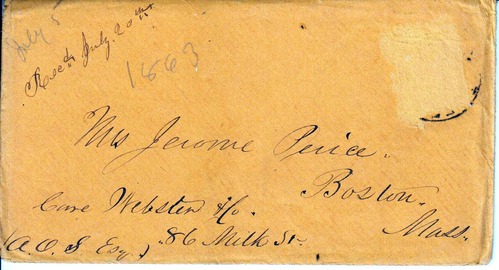 July 5
Recd. July. 20th
1863
Mrs Jerome Peirce.
Boston.
Mass.
Care Webster & Co.
86 Milk St.
(A. O. S Esq.)